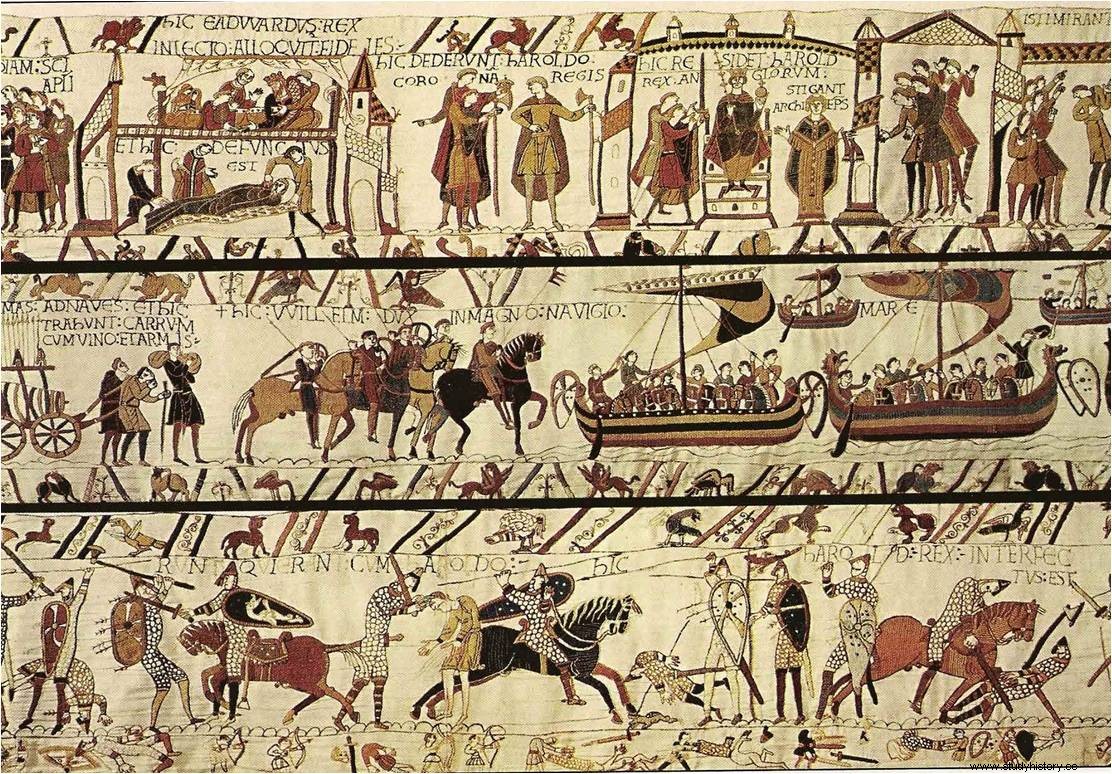 DIAM: SCI
APLI
hIC EADVVARDVS: REX
INLECTO: ALLOQVIT: FIDELES:-
ET hIC: DEFVNCTVS
EST
hIC DEDERVNT: hAROLDO:
CORO NA REGIS
hIC RE SIDET: hAROLD
REX: AN GLORVM:
STIGANT
ARChI EPS
ISTI MIRANT
MAS: ADNAVES: ET hIC
TRAhVNT: CARRVM
CVM VINO: ET ARMIS:-
+ hIC: VVILLELM: DVX INMAGNO: NAVIGIO:
MARE
RVNT QVI ERANT: CVM hAROLDO:- hIC hAROLD: REX: INTERFEC
TVS: EST